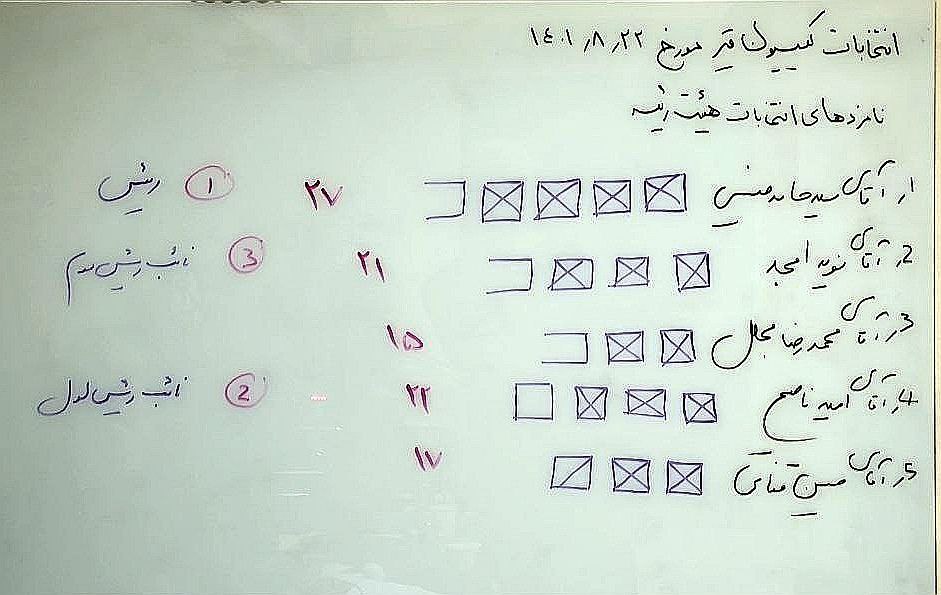 انتخابات کمیسیون قیر مورخ ۱۴۰۱٫۸٫۲۲
نامزدهای انتخابات هیئت رئیسه
1. آقای سید حامد حسنی ۲۷ ① رئیس
2. آقای نوید امجد ۲۱ ③ نائب رئیس دوم
3. آقای محمدرضا مجلل ۱۵
4. آقای امید ناصح ۲۲ ② نائب رئیس اول
5. آقای حسین قنایی ۱۷